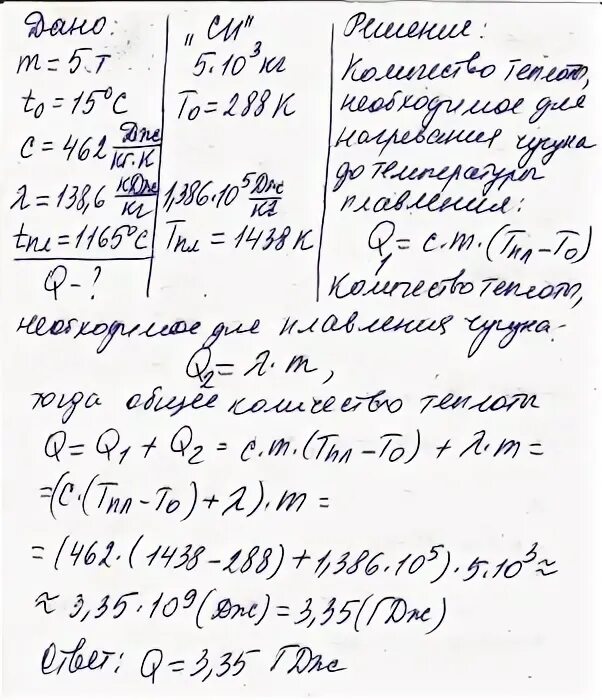 Дано:
m = 5 т
t₀ = 15°C
c = 462 Дж/кг·К
λ = 138,6 кДж/кг
tпл = 1165°C
Q - ?
„СИ"
5·10³ кг
T₀ = 288 К
1,386·10⁵ Дж/кг
Tпл = 1438 К
Решение:
Количество теплоты,
необходимое для
нагревания чугуна
до температуры
плавления:
Q₁ = c·m·(Tпл – T₀)
Количество теплоты,
необходимое для плавления чугуна-
Q₂ = λ·m,
тогда общее количество теплоты
Q = Q₁ + Q₂ = c·m·(Tпл – T₀) + λ·m =
= (c·(Tпл – T₀) + λ)·m =
= (462·(1438 – 288) + 1,386·10⁵)·5·10³ ≈
≈ 3,35·10⁹ (Дж) = 3,35 (ГДж)
Ответ: Q = 3,35 ГДж